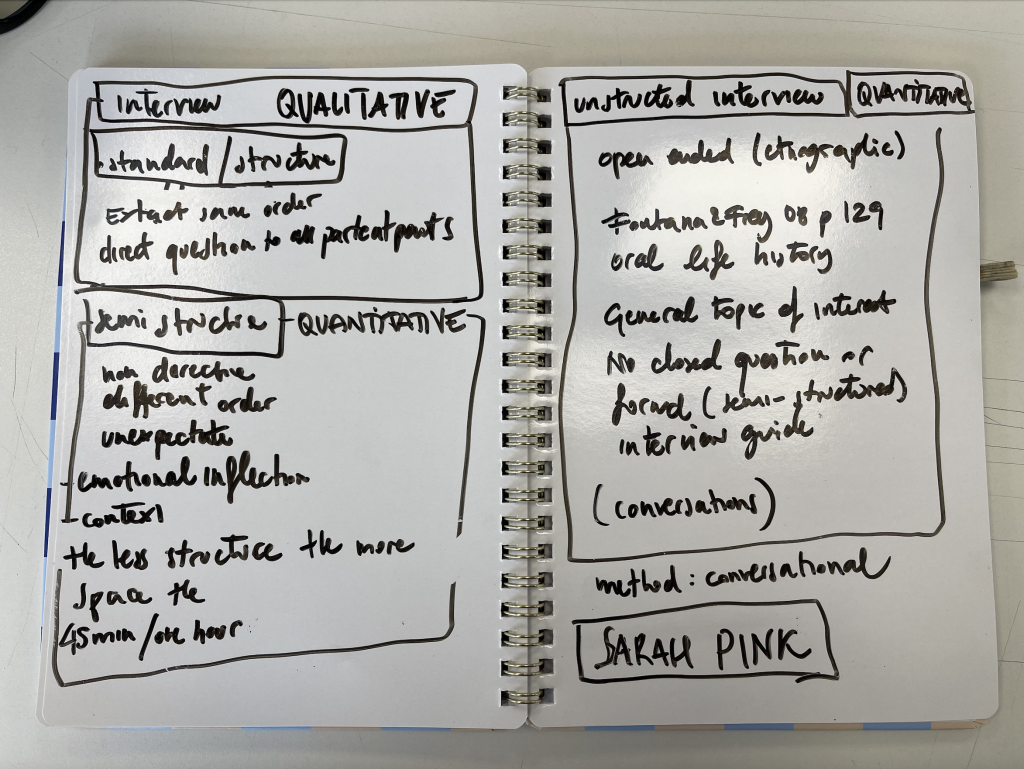 interview QUALITATIVE
standard / structure
Extact same order
direct question to all parteatpants
semi structure - QUANTITATIVE
non derective
different order
unexpectate
- emotional inflection
- context
the less structure the more
space the
45min/one hour
unstructed interview QUANTITATIVE
open ended (ethnographic)
Fontana & Frey 08 p 129
oral life history
General topic of interest
No closed question or
formal (semi-structured)
interview guide
(conversations)
method: conversational
SARAH PINK